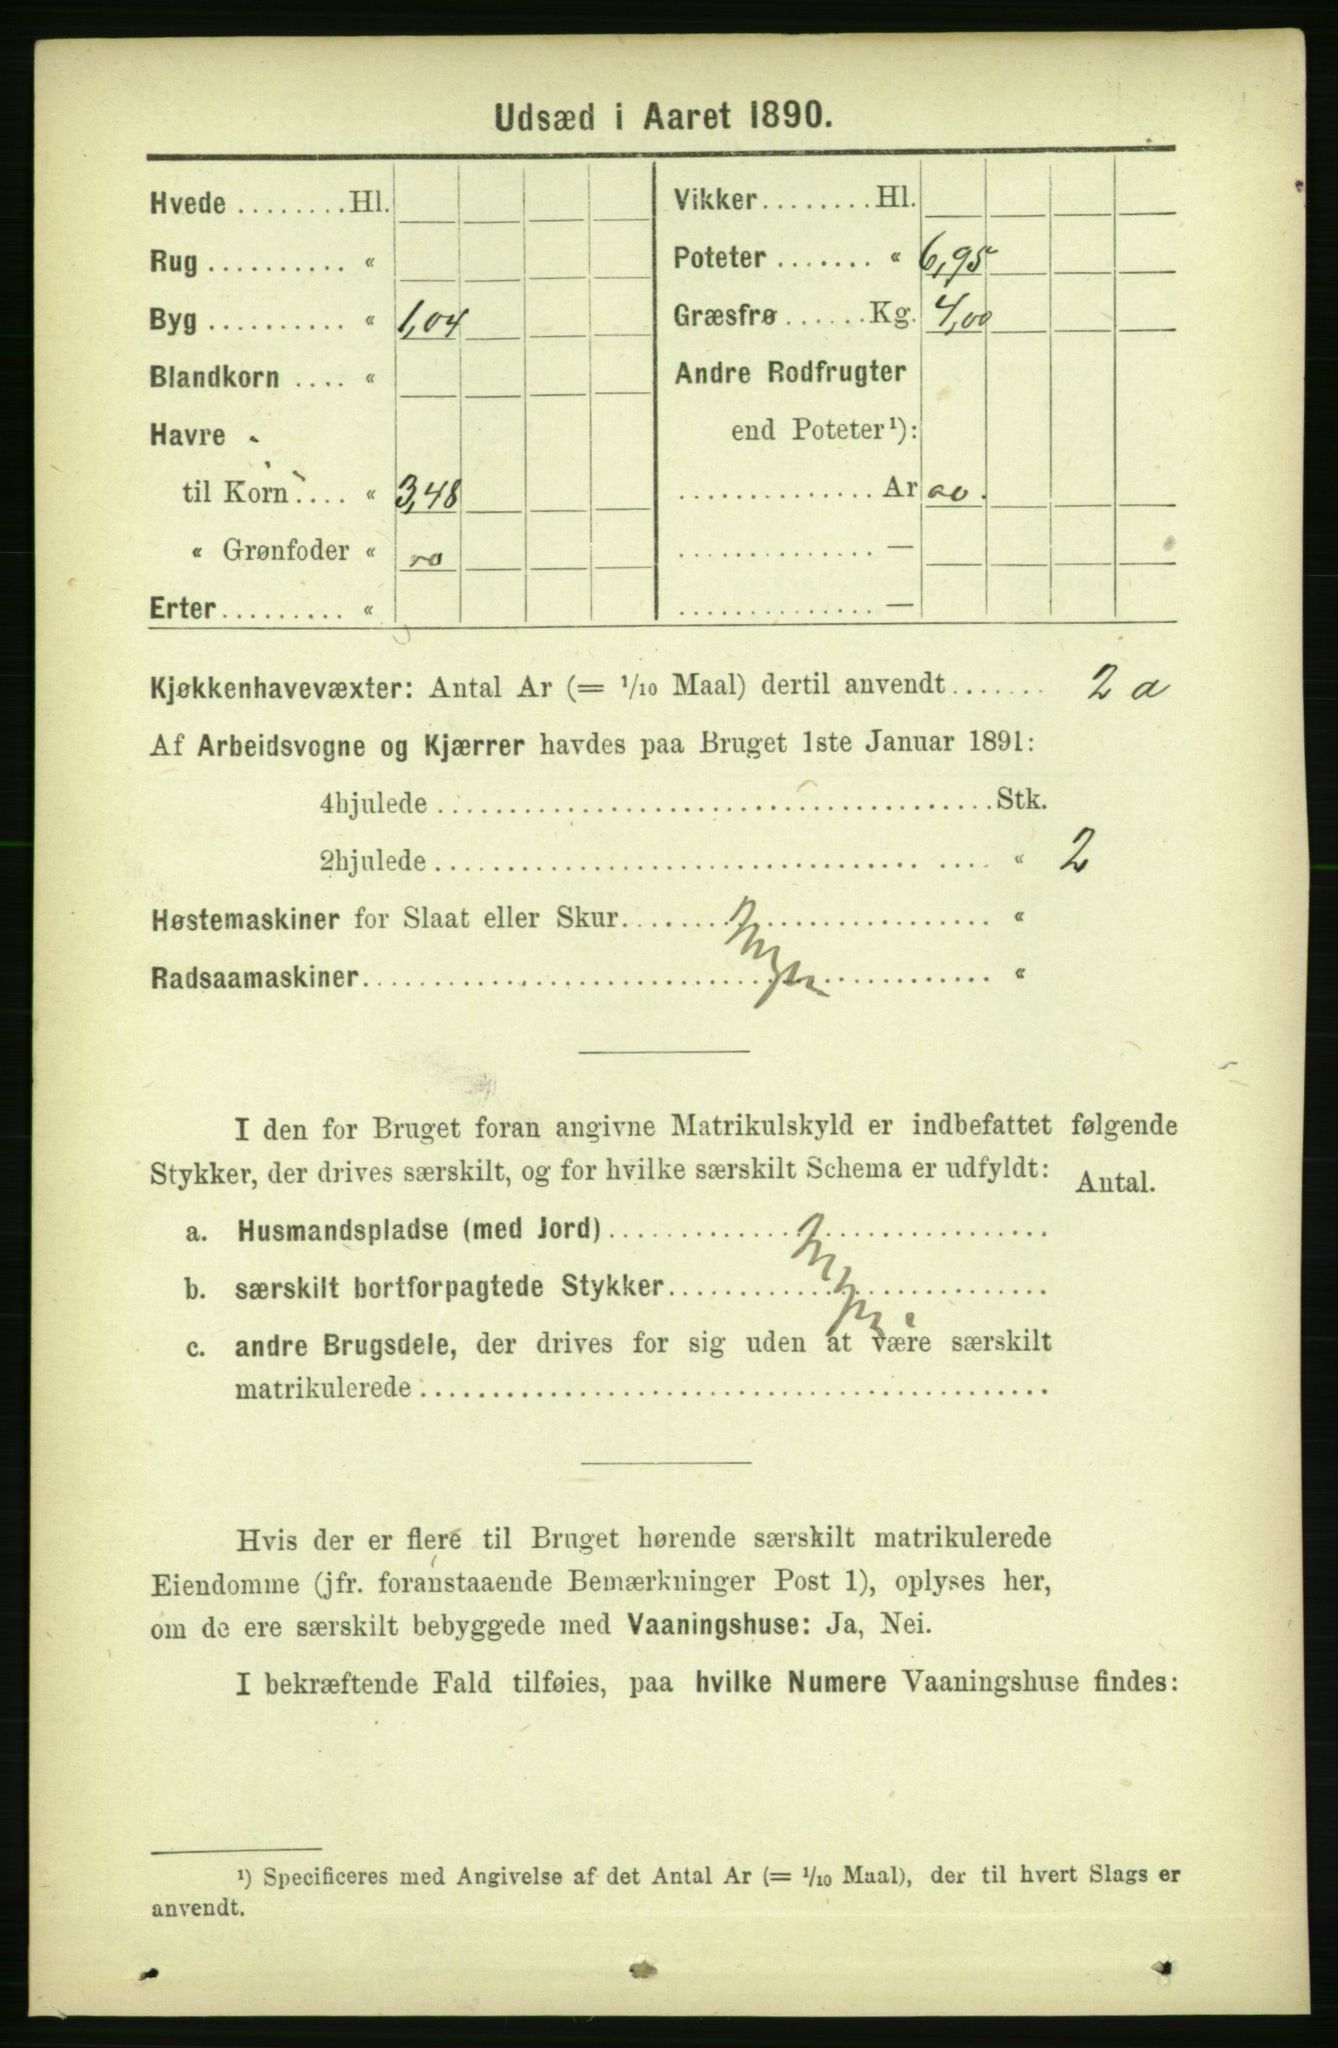 Udsæd i Aaret 1890.
Hvede ........ Hl.
Rug .......... "
Byg .......... " 1,04
Blandkorn .... "
Havre
til Korn .... " 3,48
" Grønfoder "
Erter ......... "
Vikker ........ Hl.
Poteter ....... " 6,95
Græsfrø ...... Kg. 4,00
Andre Rodfrugter
end Poteter ¹):
.............. Ar
.............. —
.............. —
Kjøkkenhavevæxter: Antal Ar (= 1/10 Maal) dertil anvendt ....... 2 a
Af Arbeidsvogne og Kjærrer havdes paa Bruget 1ste Januar 1891:
4hjulede ........................................ Stk.
2hjulede ........................................ " 2
Høstemaskiner for Slaat eller Skur .......................... "
Radsaamaskiner ............................................ "
I den for Bruget foran angivne Matrikulskyld er indbefattet følgende
Stykker, der drives særskilt, og for hvilke særskilt Schema er udfyldt: Antal.
a. Husmandspladse (med Jord) ...............................
b. særskilt bortforpagtede Stykker ...........................
c. andre Brugsdele, der drives for sig uden at være særskilt
matrikulerede ............................................
Hvis der er flere til Bruget hørende særskilt matrikulerede
Eiendomme (jfr. foranstaaende Bemærkninger Post 1), oplyses her,
om de ere særskilt bebyggede med Vaaningshuse: Ja, Nei.
I bekræftende Fald tilføies, paa hvilke Numere Vaaningshuse findes:
¹) Specificeres med Angivelse af det Antal Ar (= 1/10 Maal), der til hvert Slags er
anvendt.